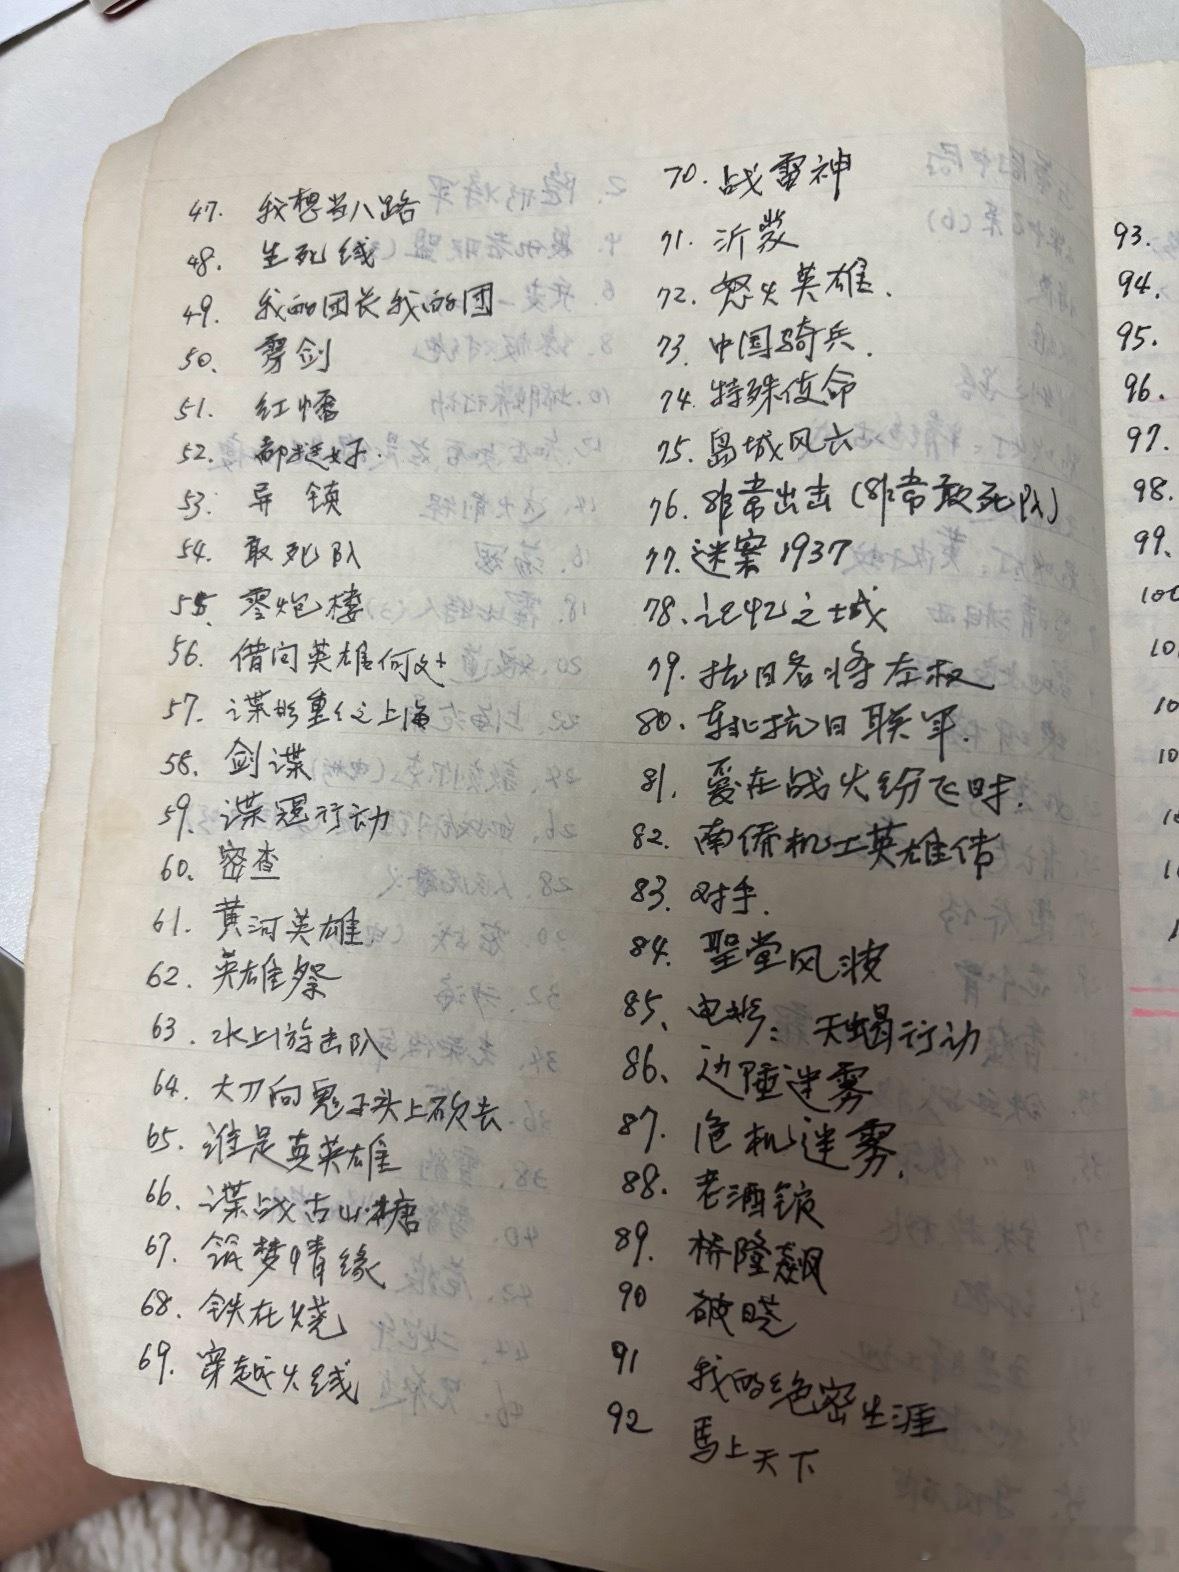 47. 我想当八路
48. 生死线
49. 我的团长我的团
50. 雾剑
51. 红幡
52. 都挺好.
53. 异镇
54. 敢死队
55. 零炮楼
56. 借问英雄何处
57. 谍影重重之上海
58. 剑谍
59. 谍冠行动
60. 密查
61. 黄河英雄
62. 英雄祭
63. 水上游击队
64. 大刀向鬼子头上砍去
65. 谁是真英雄
66. 谍战古山塘
67. 筑梦情缘
68. 铁在烧
69. 穿越火线
70. 战雷神
71. 沂蒙
72. 怒火英雄.
73. 中国骑兵.
74. 特殊使命
75. 岛城风云
76. 非常出击 (非常敢死队)
77. 迷案1937
78. 记忆之城
79. 抗日名将左权
80. 东北抗日联军.
81. 爱在战火纷飞时.
82. 南侨机工英雄传
83. 对手.
84. 聖堂风波
85. 电影: 天蝎行动
86. 边陲迷雾
87. 危机迷雾.
88. 老酒馆
89. 桥隆飙
90 破晓
91 我的绝密生涯
92 馬上天下
93.
94.
95.
96.
97.
98.
99.